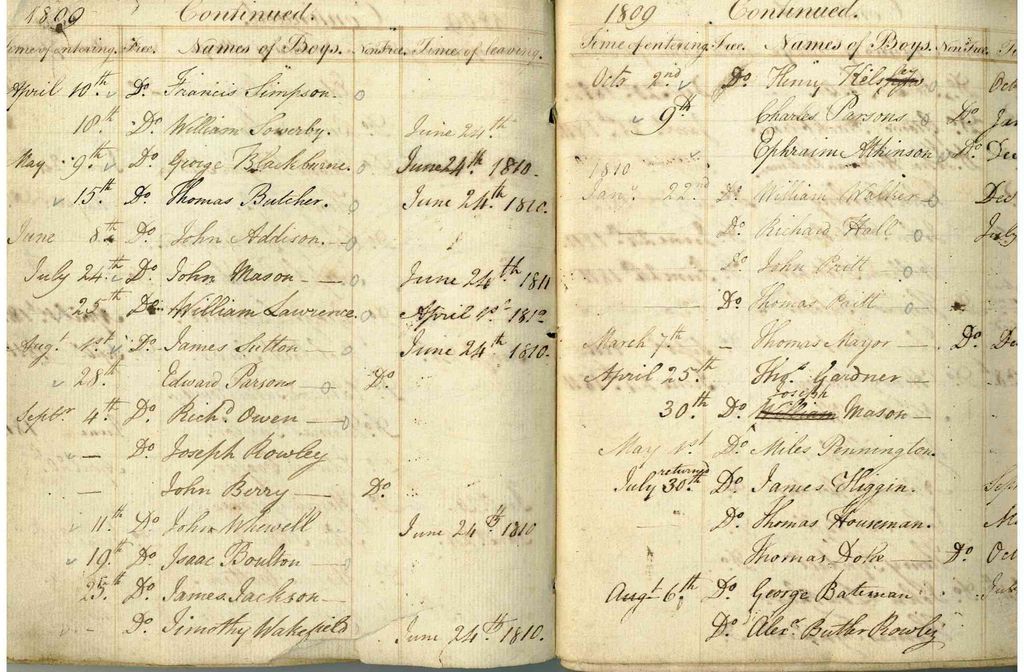 1809 Continued.
Time of entering. Free. Names of Boys. Non Free. Time of leaving.
April 10th Do. Francis Simpson.
18th Do. William Sowerby. June 24th
May 9th Do George Blackburne. June 24th 1810.
15th Do. Thomas Butcher. June 24th 1810.
June 8th Do. John Addison.
July 24th Do. John Mason June 24th 1811
25th Do William Lawrence. April 1st 1810
Augt 1st Do. James Sutton June 24th 1810.
28th Edward Parsons Do.
Septr 4th Do. Richd Owen
Do. Joseph Rowley
John Berry Do.
11th Do John Whewell June 24th 1810
19th Do. Isaac Boulton
25th Do. James Jackson
Do. Timothy Wakefield June 24th 1810.
1809 Continued.
Time of entering. Free. Names of Boys. Non Free.
Octr 2nd Do. Henry Oct
9th Charles Parsons Do. Jan
Ephraim Atkinson Do.
1810
Jany 22nd Do. William Dec
Do. Richard Hall July
Do John Pritt
Do Thomas Pritt
March 7th Thomas Mayor Do. De
April 25th Thos Gardner
30th Do. Joseph William Mason
May 1st Do. Miles Pennington
July returned 30th Do. James Higgin. Sep
Do. Thomas Houseman. M
Thomas Doke Do. Oct
Augt 6th Do George Bateman
Do. Alexr Butler Rowley